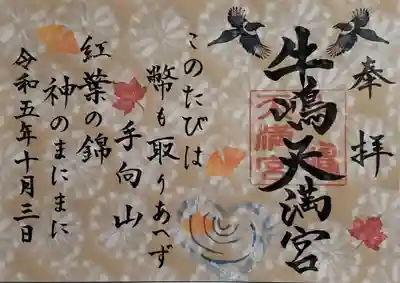 奉拝
牛嶋天満宮
このたびは
幣も取りあへず
手向山
紅葉の錦
神のまにまに
令和五年十月三日